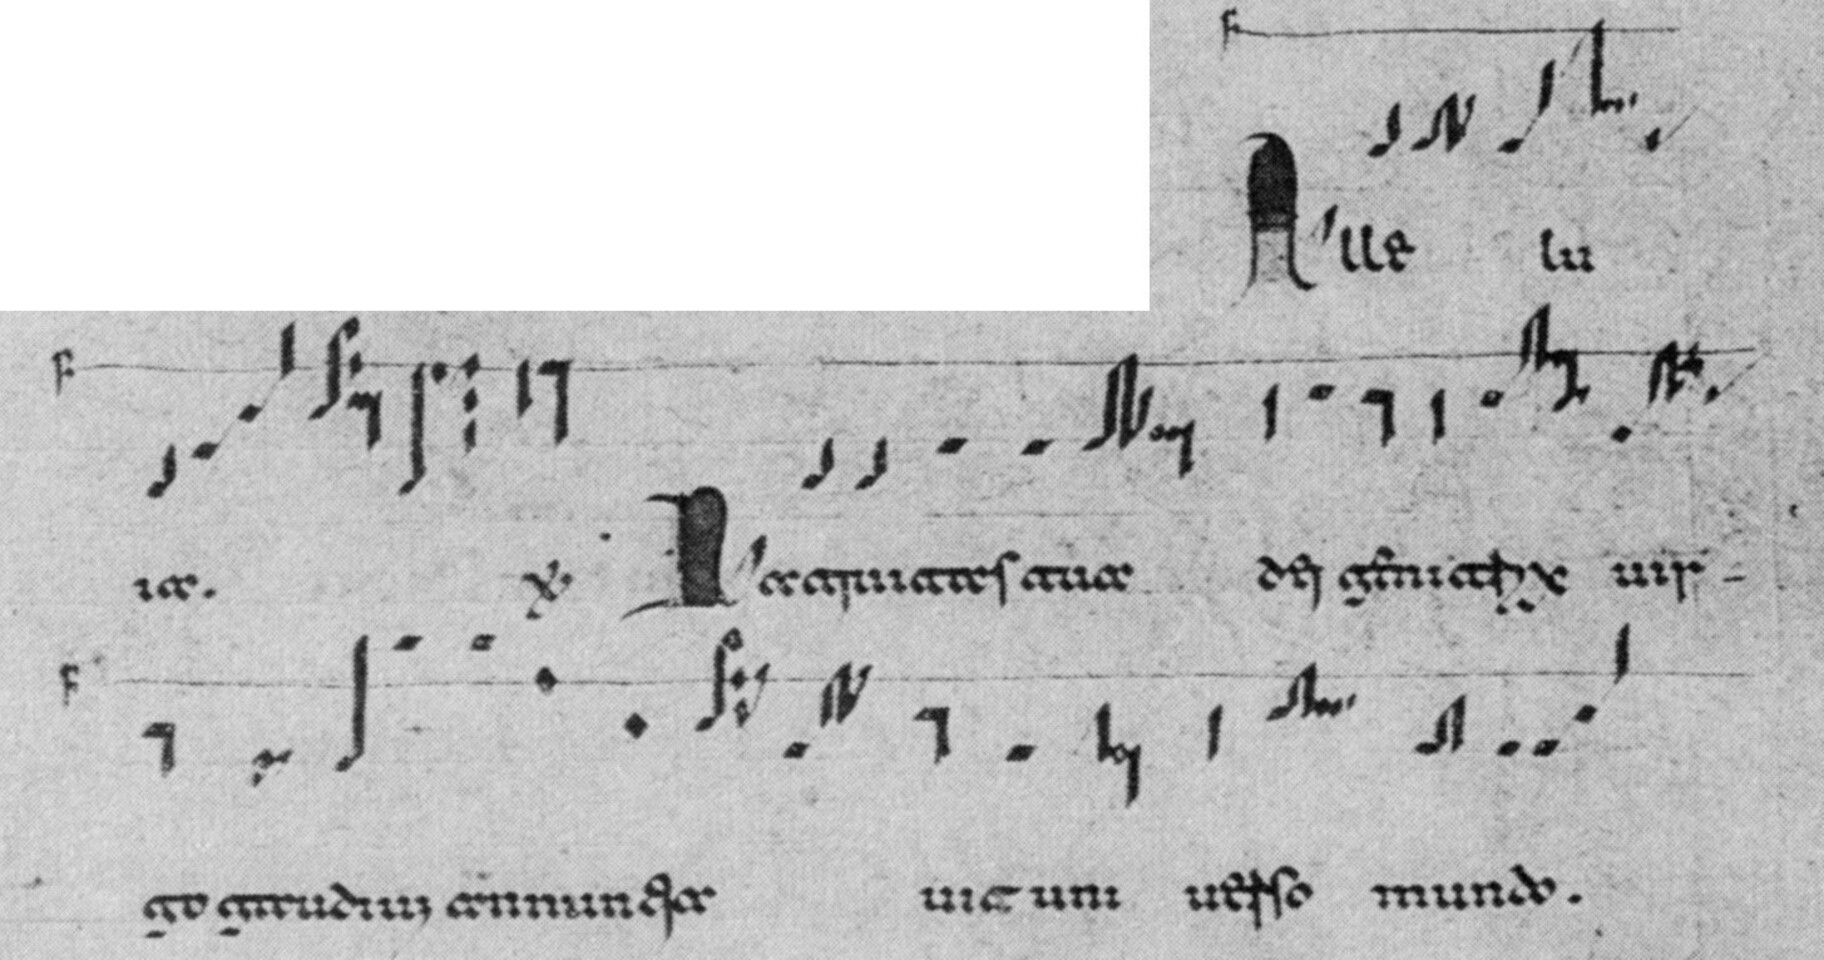 F
Alle lu
F
ia. V Natiuitas tua di genitrix uir-
F
go gaudium annuntia uit uni uerso mundo.